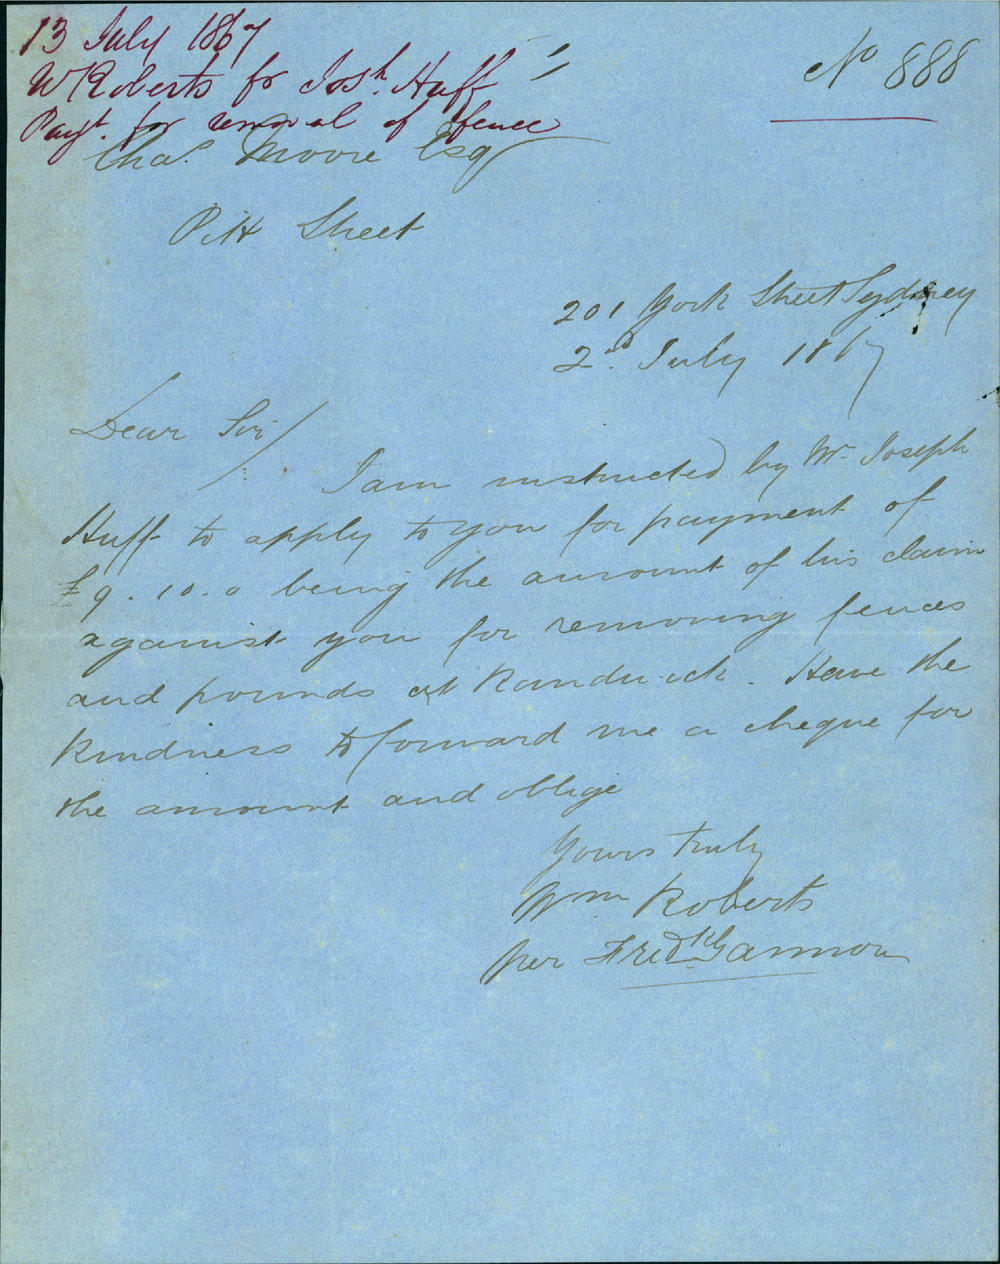 13 July 1867
W Roberts for Josh. Huff
Payt. for removal of fence
No 888
Chas. Moore Esq
Pitt Street
201 York Street Sydney
2nd July 1867
Dear Sir/
I am instructed by Mr. Joseph
Huff to apply to you for payment of
£9.10.0 being the amount of his claim
against you for removing fences
and pounds at Randwick. Have the
kindness to forward me a cheque for
the amount and oblige
Yours truly
Wm Roberts
per Fredk Gannon